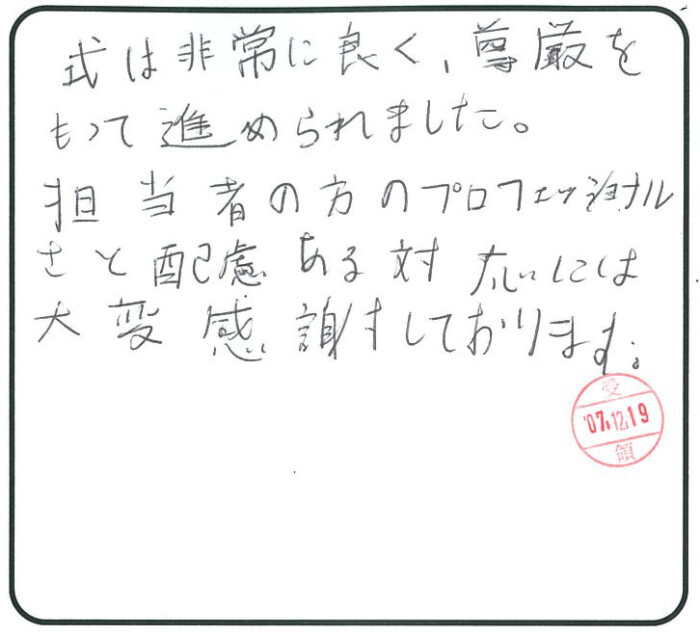 式は非常に良く、尊厳を
もって進められました。
担当者の方のプロフェッショナル
さと配慮ある対応には
大変感謝しております。
受
'07.12.19
領